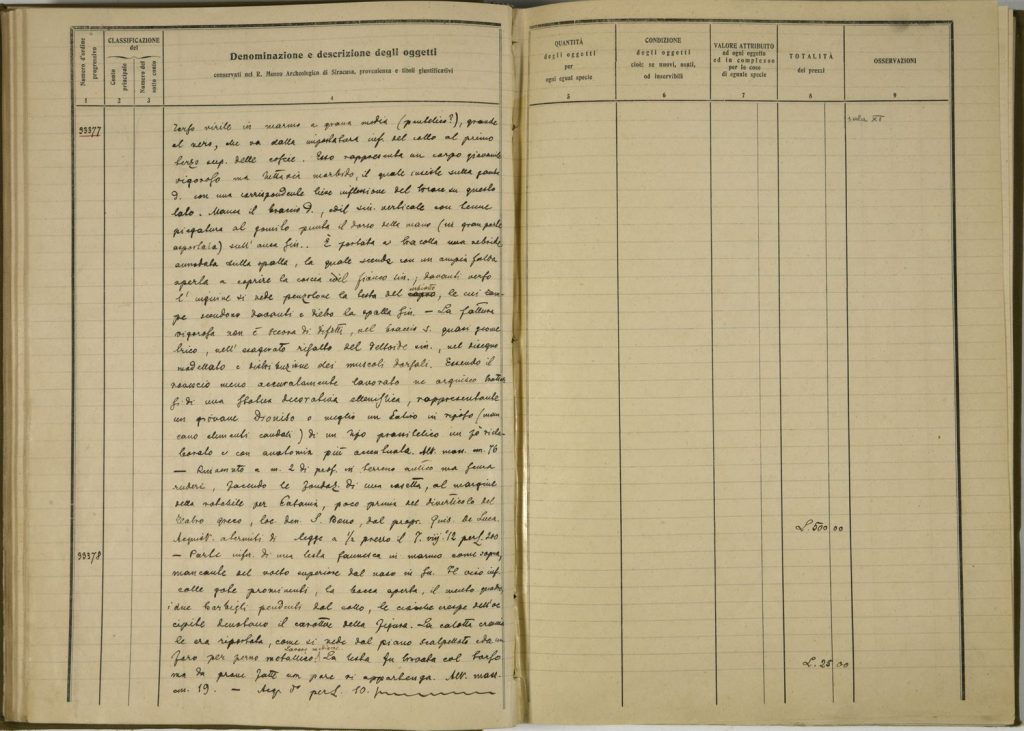 Numero d'ordine progressivo
CLASSIFICAZIONE
del
Conto principale
Numero del sotto conto
Denominazione e descrizione degli oggetti
conservati nel R. Museo Archeologico di Siracusa, provenienza e titoli giustificativi
1 2 3 4
QUANTITÀ
degli oggetti
per
ogni egual specie
CONDIZIONE
degli oggetti
cioè: se nuovi, usati,
od inservibili
VALORE ATTRIBUITO
ad ogni oggetto
ed in complesso
per le cose
di eguale specie
TOTALITÀ
dei prezzi
OSSERVAZIONI
5 6 7 8 9
33377
Torso virile in marmo a grana media (pentelico?), grande
al vero, che va dalla impostatura inf. del collo al primo
terzo sup. delle coscie. Esso rappresenta un corpo giovanile
vigoroso ma tuttavia morbido, il quale insiste sulla gamba
d. con una corrispondente lieve inflessione del torace su questo
lato. Manca il braccio d., ed il sin. verticale con lieve
piegatura al gomito punta il dorso della mano (in gran parte
asportata) sull'anca sin.. È portata a tracolla una nebride
annodata sulla spalla, la quale scende con un ampia falda
aperta a coprire la coscia ed il fianco sin.; davanti verso
l'inguine si vede penzolone la testa del capro, le cui zam-
pe scendono davanti e dietro la spalla sin. — La fattura
vigorosa non è scevra di difetti, nel braccio s. quasi geome
trico, nell'esagerato risalto del deltoide sin., nel disegno
modellato e distribuzione dei muscoli dorsali. Essendo il
rovescio meno accuratamente lavorato ne arguisco trattar
si di una statua decorativa ellenistica, rappresentante
un giovane Dioniso o meglio un Satiro in riposo (man
cano elementi caudali) di un tipo prassitelico un pò riela-
borato e con anatomia più accentuata. Alt. mass. m. 76
— Rinvenuto a m. 2 di prof. in terreno antico ma senza
ruderi, facendo le fondaz. di una casetta, al margine
della rotabile per Catania, poco prima del diverticolo del
Teatro greco, loc. den. S. Bono, dal propr. Gius. de Luca
Acquist. a termini di legge a ½ prezzo il 7. viij. '12 per L. 500
33378
— Parte infer. di una testa faunesca in marmo come sopra,
mancante del volto superiore dal naso in su. Il viso inf.
colle gote prominenti, la bocca aperta, il mento quadro
i due bargigli pendenti dal collo, le ciocche crespe dell'oc
cipite denotano il carattere della figura. La calotta crania
le era riportata, come si vede dal piano scalpellato e da un
foro per perno metallico. La testa fu trovata col torso
ma da prove fatte non pare vi appartenga. Alt. mass.
cm. 19. — Acq. d° per L. 10.
sala XI
L. 500 00
L. 25 00